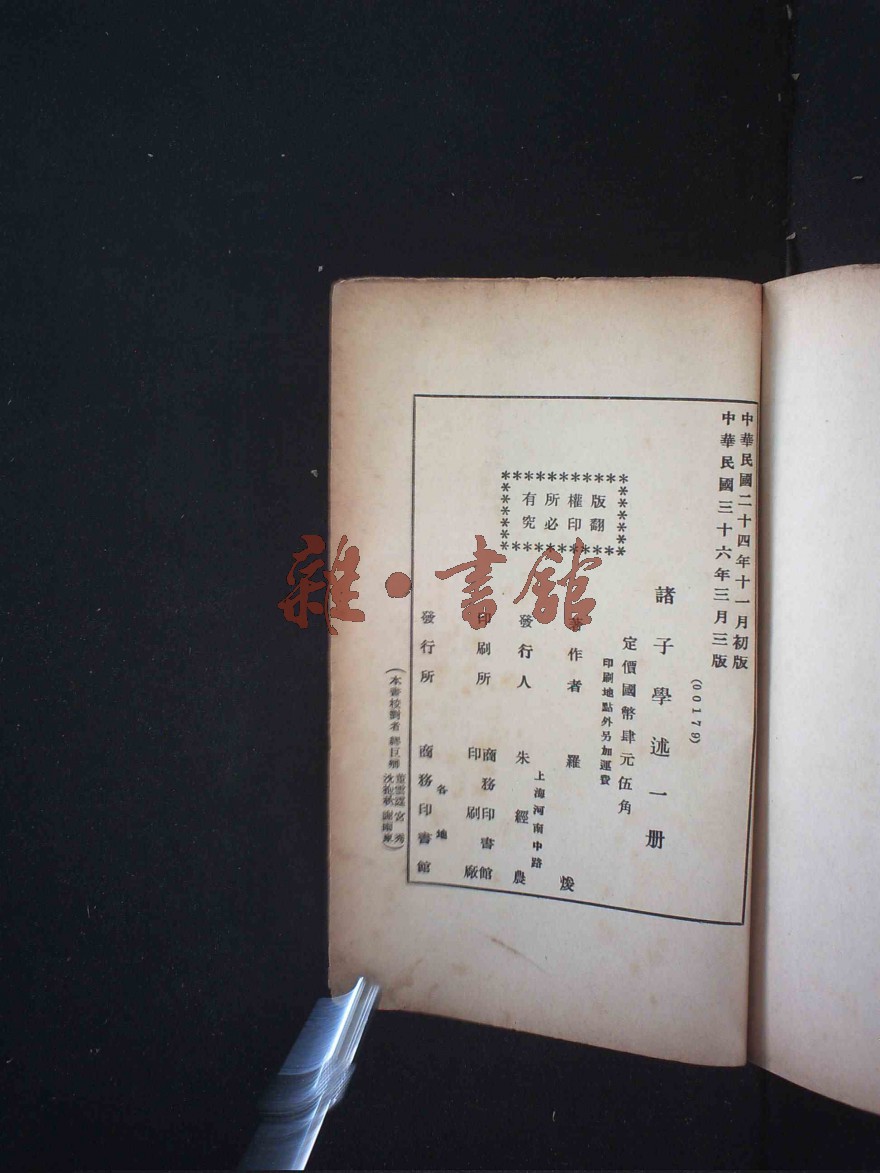 中華民國二十四年十一月初版
中華民國三十六年三月三版
(00179)
諸子學述一册
定價國幣肆元伍角
印刷地點外另加運費
版權所有
翻印必究
著作者 羅焌
發行人 朱經農
上海河南中路
印刷所 商務印書館
印刷廠
發行所 各地
商務印書館
(本書校對者
雜·書館